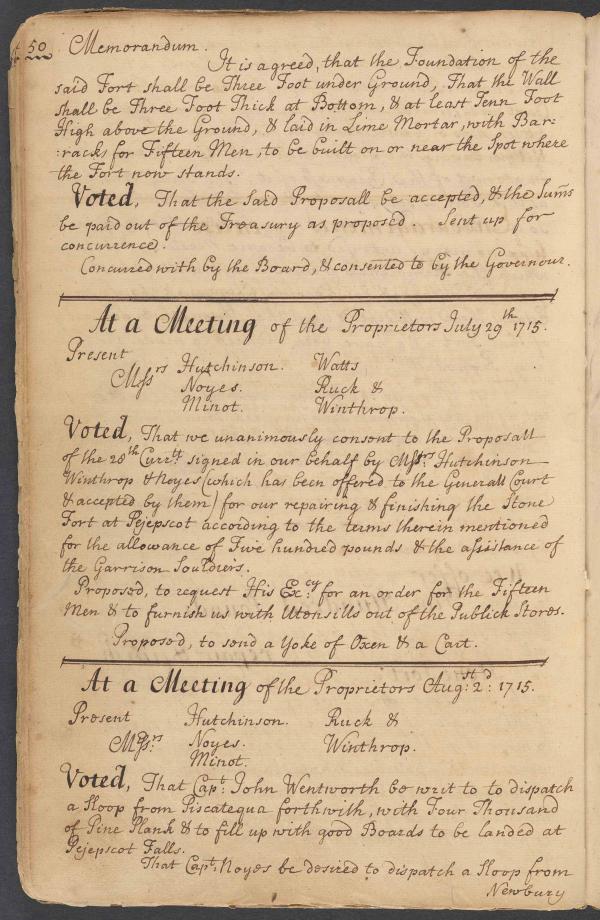 50
Memorandum.
It is agreed, that the Foundation of the
said Fort shall be Three Foot under Ground, That the Wall
shall be Three Foot Thick at Bottom, & at least Tenn Foot
High above the Ground, & laid in Lime Mortar, with Bar:
:racks for Fifteen Men, to be built on or near the Spot where
the Fort now stands.
Voted, That the said Proposall be accepted, & the Sum̄s
be paid out of the Treasury as proposed. Sent up for
concurrence.
Concurred with by the Board, & consented to by the Governour.
At a Meeting of the Proprietors July 29th 1715.
Present
Messrs Hutchinson. Watts
Noyes. Ruck &
Minot. Winthrop.
Voted, That we unanimously consent to the Proposall
of the 28th Currtt: signed in our behalf by Messrs: Hutchinson
Winthrop & Noyes (which has been offered to the Generall Court
& accepted by them) for our repairing & finishing the Stone
Fort at Pejepscot according to the terms therein mentioned
for the allowance of Five hundred pounds & the assistance of
the Garrison Souldiers.
Proposed, to request His Excy: for an order for the Fifteen
Men & to furnish us with Utensills out of the Publick Stores.
Proposed, to send a Yoke of Oxen & a Cart.
At a Meeting of the Proprietors Augst: 2d: 1715.
Present Hutchinson. Ruck &
Messrs: Noyes. Winthrop.
Minot.
Voted, That Capt: John Wentworth be writ to to dispatch
a Sloop from Piscatequa forthwith, with Four Thousand
of Pine Plank & to fill up with good Boards to be landed at
Pejepscot Falls.
That Capt: Noyes be desired to dispatch a Sloop from
Newbury